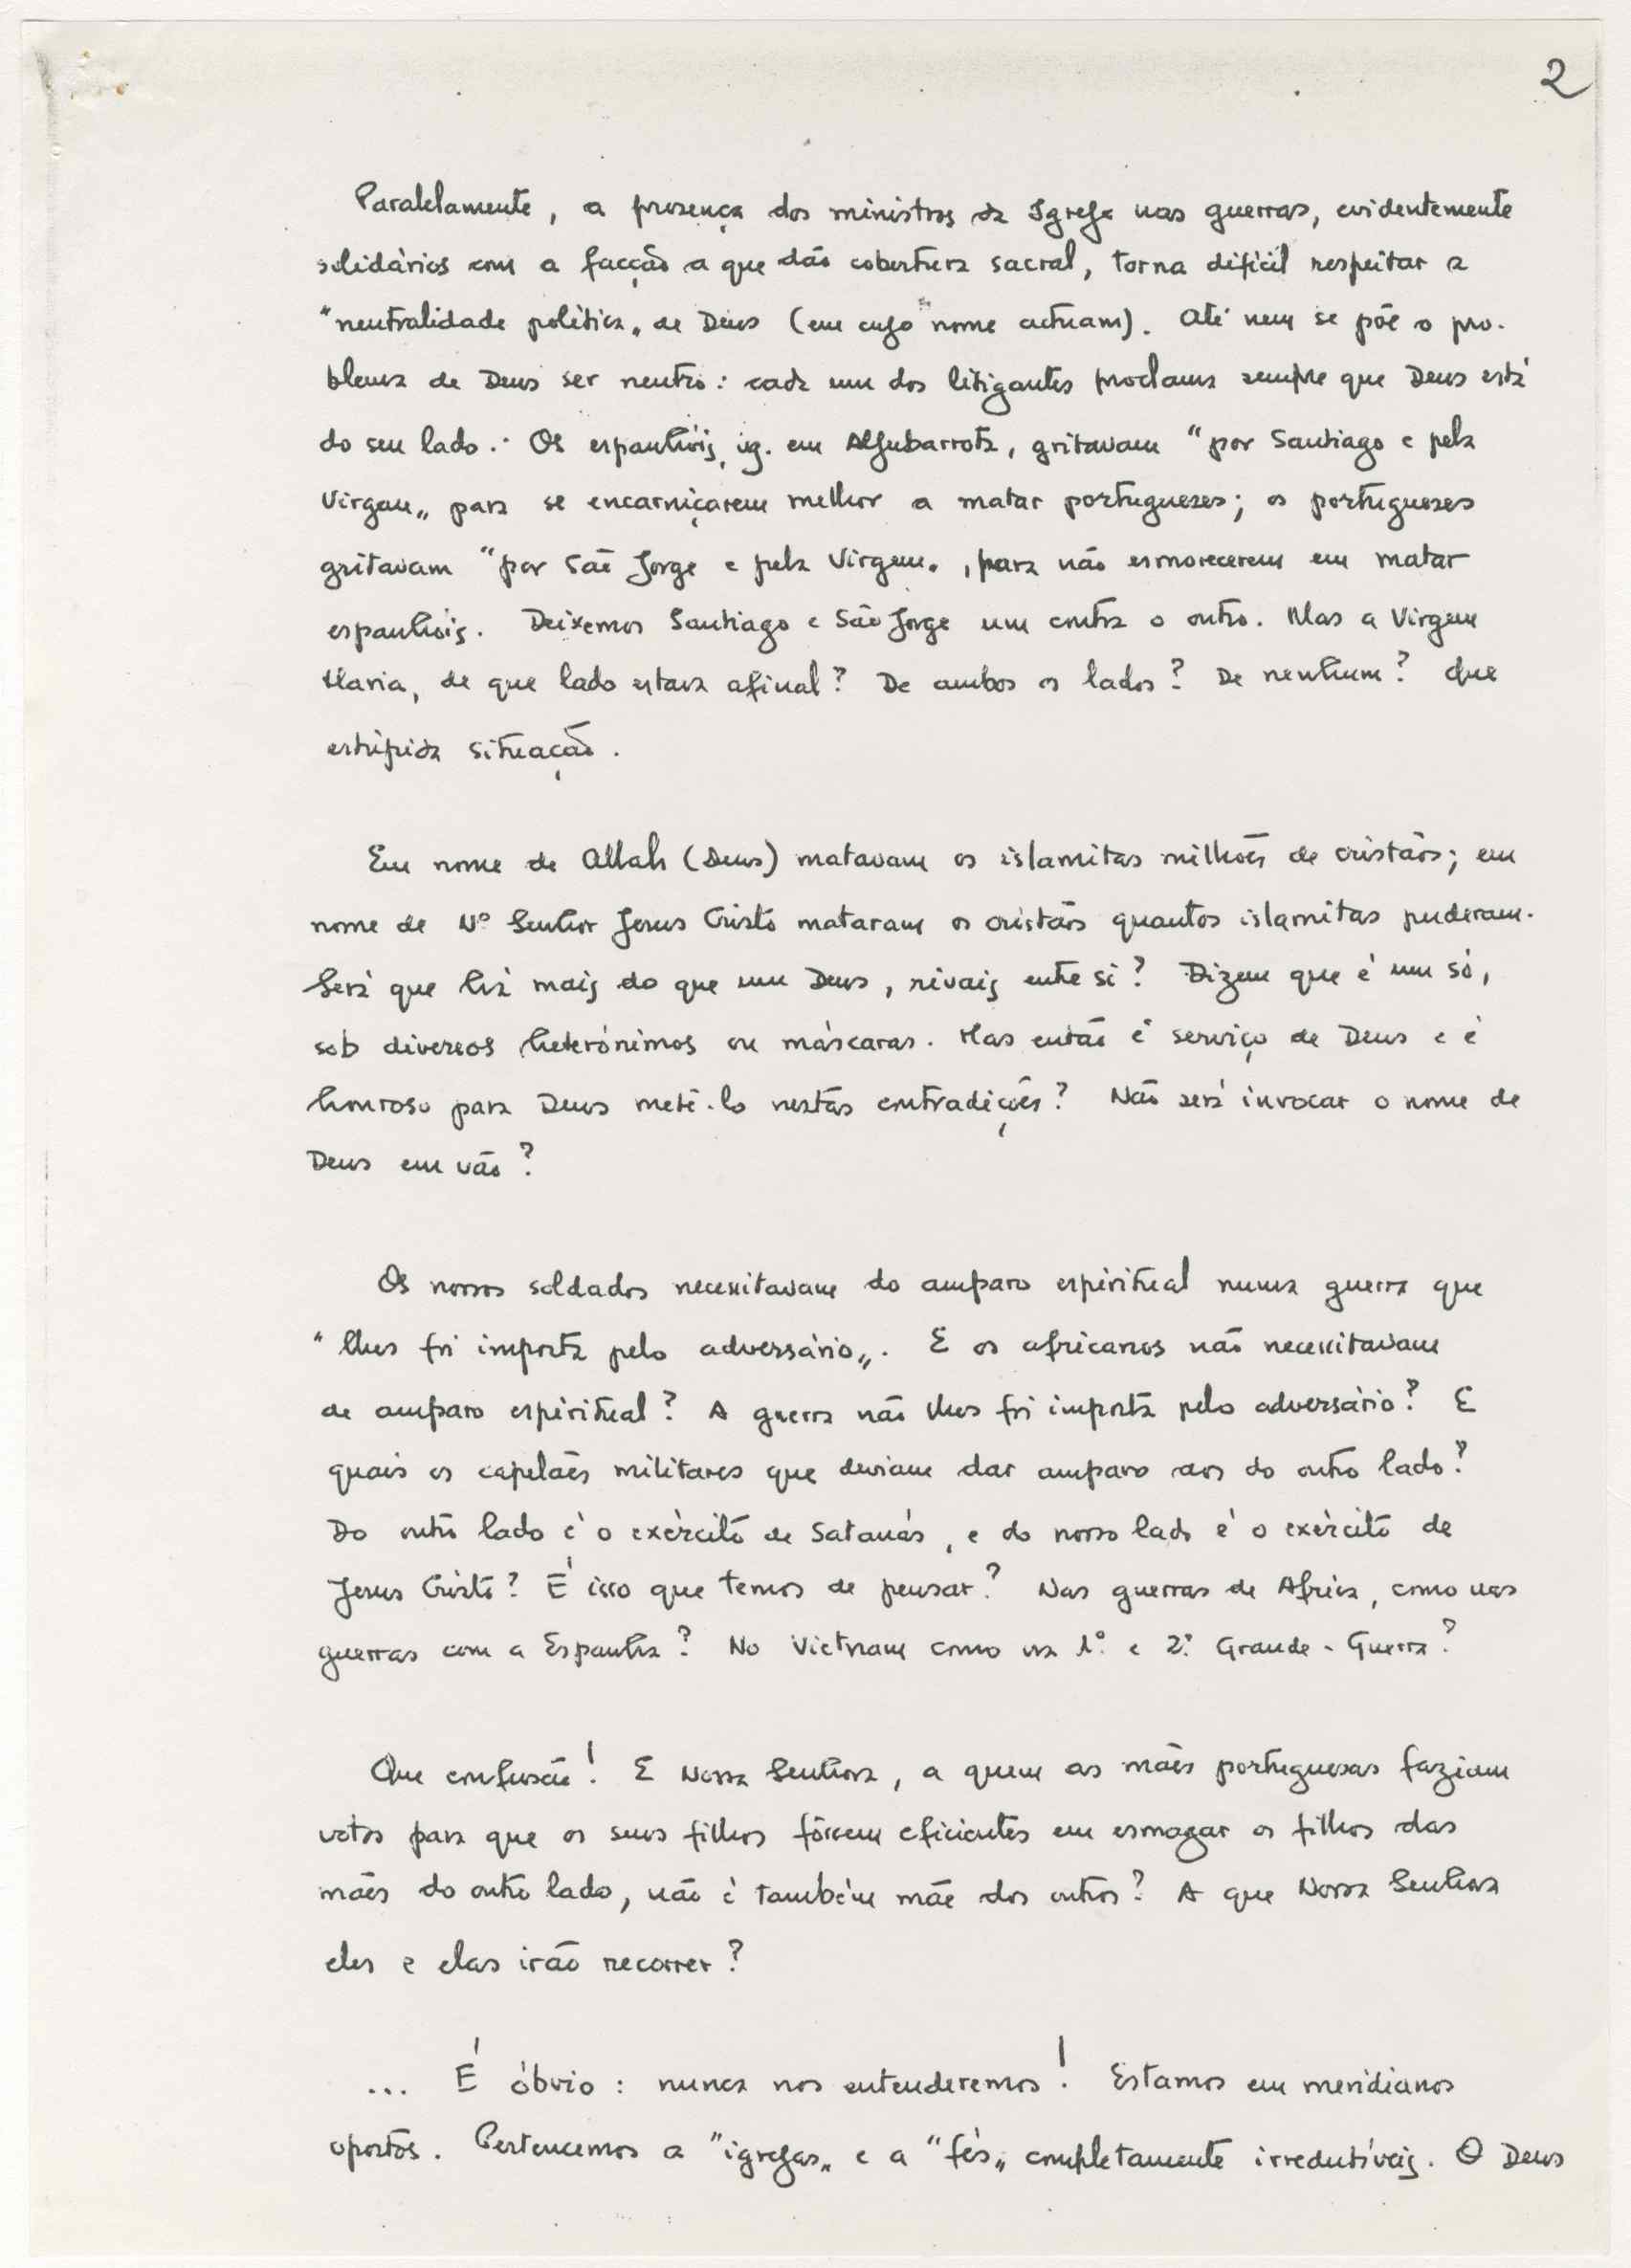 2
Paralelamente, a presença dos ministros da Igreja nas guerras, evidentemente
solidários com a facção a que dão cobertura sacral, torna difícil respeitar a
"neutralidade política„ de Deus (em cujo nome actuam). Até nem se põe o pro-
blema de Deus ser neutro: cada um dos litigantes proclama sempre que Deus está
do seu lado.: Os espanhóis, vg. em Aljubarrota, gritavam "por Santiago e pela
Virgem„ para se encarniçarem melhor a matar portugueses; os portugueses
gritavam "por São Jorge e pela Virgem„, para não esmorecerem em matar
espanhóis. Deixemos Santiago e São Jorge um contra o outro. Mas a Virgem
Maria, de que lado estava afinal? De ambos os lados? De nenhum? Que
estúpida situação.
Em nome de Allah (Deus) matavam os islamitas milhões de cristãos; em
nome de Nº Senhor Jesus Cristo mataram os cristãos quantos islamitas puderam.
Será que há mais do que um Deus, rivais entre si? Dizem que é um só,
sob diversos heterónimos ou máscaras. Mas então é serviço de Deus e é
honroso para Deus metê-lo nestas contradições? Não será invocar o nome de
Deus em vão?
Os nossos soldados necessitavam do amparo espiritual numa guerra que
"lhes foi imposta pelo adversário„. E os africanos não necessitavam
de amparo espiritual? A guerra não lhes foi imposta pelo adversário? E
quais os capelães militares que deviam dar amparo aos do outro lado?
Do outro lado é o exército de Satanás, e do nosso lado é o exército de
Jesus Cristo? É isso que temos de pensar? Nas guerras de Africa, como nas
guerras com a Espanha? No Vietnam como na 1ª e 2ª Grande-Guerra?
Que confusão! E Nossa Senhora, a quem as mães portuguesas faziam
votos para que os seus filhos fôssem eficientes em esmagar os filhos das
mães do outro lado, não é também mãe dos outros? A que Nossa Senhora
eles e elas irão recorrer?
... É óbvio: nunca nos entenderemos! Estamos em meridianos
opostos. Pertencemos a "igrejas„ e a "fés„ completamente irredutíveis. O Deus